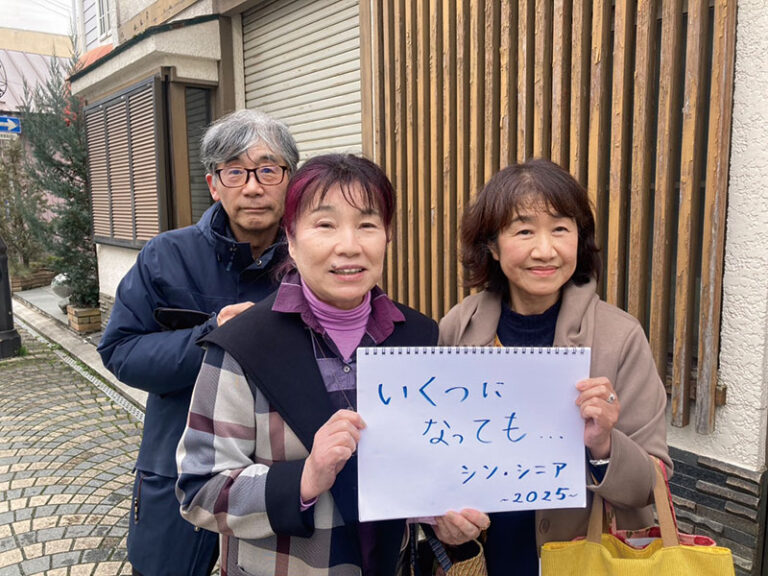 いくつに
なっても...
シン・シニア
~2025~